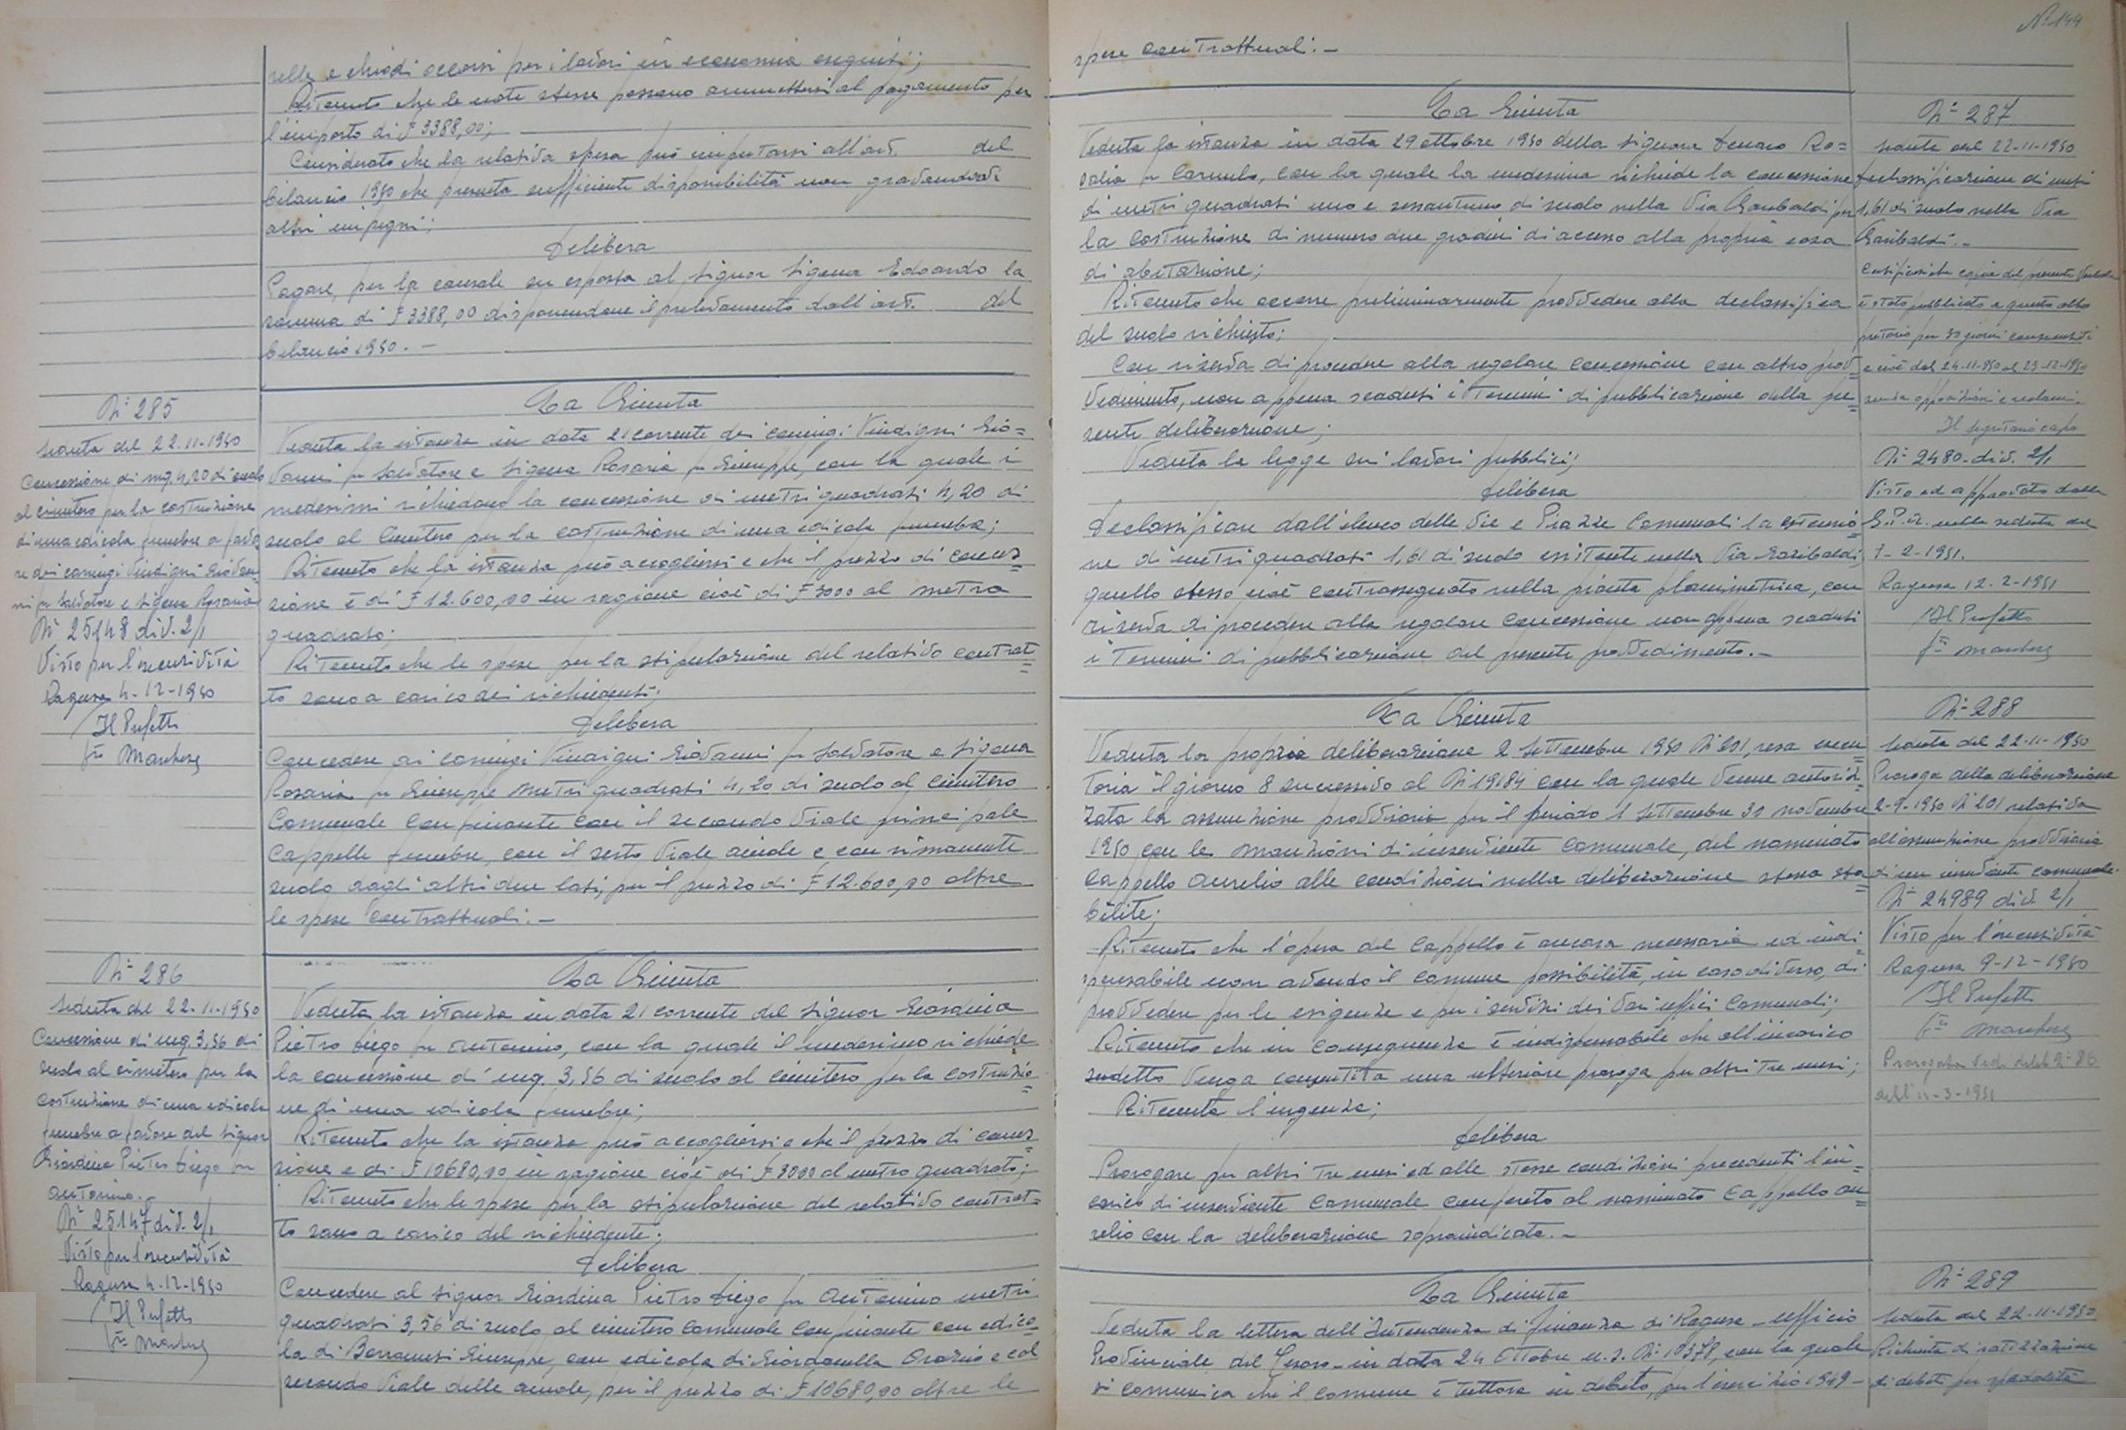 relle e chiodi occorsi per i lavori in economia eseguiti;
Ritenuto che le note stesse possano ammettersi al pagamento per
l'importo di £ 3388,00;
Considerato che la relativa spesa può imputarsi all'art. del
bilancio 1950 che presenta sufficiente disponibilità non gravandovi
altri impegni;
Delibera
Pagare, per la causale su esposta al signor Sigona Edoardo la
somma di £ 3388,00 disponendone il prelevamento dall'art. del
bilancio 1950. -
N° 285
Seduta del 22-11-1950
Concessione di mq. 4,20 di suolo
al cimitero per la costruzione
di una edicola funebre a favo
re dei coniugi Vindigni Giovan
ni fu Salvatore e Sigona Rosaria
N° 25148 div. 2/1
Visto per l'esecutività
Ragusa 4-12-1950
Il Prefetto
La Giunta
Veduta la istanza in data 21 corrente dei coniugi Vindigni Gio=
vanni fu Salvatore e Sigona Rosaria fu Giuseppe, con la quale i
medesimi richiedono la concessione di metri quadrati 4,20 di
suolo al Cimitero per la costruzione di una edicola funebre;
Ritenuto che la istanza può accogliersi e che il prezzo di conces=
sione è di £ 12.600,00 in ragione cioè di £ 3000 al metro
quadrato;
Ritenuto che le spese per la stipulazione del relativo contrat=
to sono a carico dei richiedenti;
Delibera
Concedere ai coniugi Vindigni Giovanni fu Salvatore e Sigona
Rosaria fu Giuseppe metri quadrati 4,20 di suolo al cimitero
Comunale confinante con il secondo Viale principale
Cappelle funebre, con il sesto Viale aiuole e con rimanente
suolo dagli altri due lati, per il prezzo di £ 12.600,00 oltre
le spese contrattuali. -
N° 286
Seduta del 22-11-1950
Concessione di mq. 3,56 di
suolo al cimitero per la
costruzione di una edicola
funebre a favore del signor
Giardina Pietro Diego fu
Antonino. -
N° 25147 div. 2/1
Visto per l'esecutività
Ragusa 4-12-1950
Il Prefetto
La Giunta
Veduta la istanza in data 21 corrente del signor Giardina
Pietro Diego fu Antonino, con la quale il medesimo richiede
la concessione di mq. 3,56 di suolo al cimitero per la costruzio=
ne di una edicola funebre;
Ritenuto che la istanza può accogliersi e che il prezzo di conces=
sione e di £ 10680,00 in ragione cioè di £ 3000 al metro quadrato;
Ritenuto che le spese per la stipulazione del relativo contrat=
to sono a carico del richiedente;
Delibera
Concedere al signor Giardina Pietro Diego fu Antonino metri
quadrati 3,56 di suolo al cimitero comunale confinante con edico=
la di Giuseppe, con edicola di Orazio e col
secondo Viale delle aiuole, per il prezzo di £ 10680,00 oltre le
N° 144
spese contrattuali. -
La Giunta
Veduta la istanza in data 29 ottobre 1950 della signora Denaro Ro=
salia fu Carmelo, con la quale la medesima richiede la concessione
di metri quadrati uno e sessantuno di suolo nella Via Garibaldi per
la costruzione di numero due gradini di accesso alla propria casa
di abitazione;
Ritenuto che occorre preliminarmente provvedere alla declassifica
del suolo richiesto;
Con riserva di procedere alla regolare concessione con altro prov=
vedimento, non appena scaduti i termini di pubblicazione della pre=
sente deliberazione;
Veduta la legge sui lavori pubblici;
Delibera
Declassificare dall'elenco delle Vie e Piazze Comunali la estensio=
ne di metri quadrati 1,61 di suolo esistente nella Via Garibaldi
quello stesso cioè contrassegnato nella pianta planimetrica, con
riserva di procedere alla regolare concessione non appena scaduti
i termini di pubblicazione del presente provvedimento. -
N° 287
Seduta del 22-11-1950
Declassificazione di metri
1,61 di suolo nella Via
Garibaldi. -
Certificasi che copia del presente verbale
è stata pubblicata a questo albo
pretorio per 30 giorni consecutivi
e cioè dal 24-11-950 al 23-12-1950
senza opposizioni e reclami.
Il segretario capo
N° 2480 div. 2/1
Visto ed approvato dalla
G.P.A. nella seduta del
7-2-1951.
Ragusa 12-2-1951
Il Prefetto
La Giunta
Veduta la propria deliberazione 2 settembre 1950 N° 201, resa esecu=
toria il giorno 8 successivo al N° 19184 con la quale venne autoriz=
zata la assunzione provvisoria per il periodo 1 settembre 30 novembre
1950 con le mansioni di inserviente Comunale, del nominato
Cappello Aurelio alle condizioni nella deliberazione stessa sta=
bilite;
Ritenuto che l'opera del Cappello è ancora necessaria ed indi=
spensabile non avendo il comune possibilità, in caso diverso, di
provvedere per le esigenze e per i servizi dei vari uffici Comunali;
Ritenuto che in conseguenza è indispensabile che all'incarico
sudetto venga consentita una ulteriore proroga per altri tre mesi;
Ritenuta l'urgenza;
Delibera
Prorogare per altri tre mesi ed alle stesse condizioni precedenti l'in=
carico di inserviente Comunale conferito al nominato Cappello Au=
relio con la deliberazione sopraindicata. -
N° 288
Seduta del 22-11-1950
Proroga della deliberazione
2-9-1950 N° 201 relativa
all'assunzione provvisoria
di un inserviente comunale.
N° 24989 div. 2/1
Visto per l'esecutività
Ragusa 9-12-1950
Il Prefetto
Prorogata Vedi delib. N° 86
dell'11-3-1951
La Giunta
Veduta la lettera dell'Intendenza di Finanza di Ragusa - Ufficio
Provinciale del Tesoro - in data 24 Ottobre u.s. N° 10378, con la quale
si comunica che il comune è tuttora in debito, per l'esercizio 1949-
N° 289
Seduta del 22-11-1950
Richiesta di rateizzazione
di debiti per spedalità